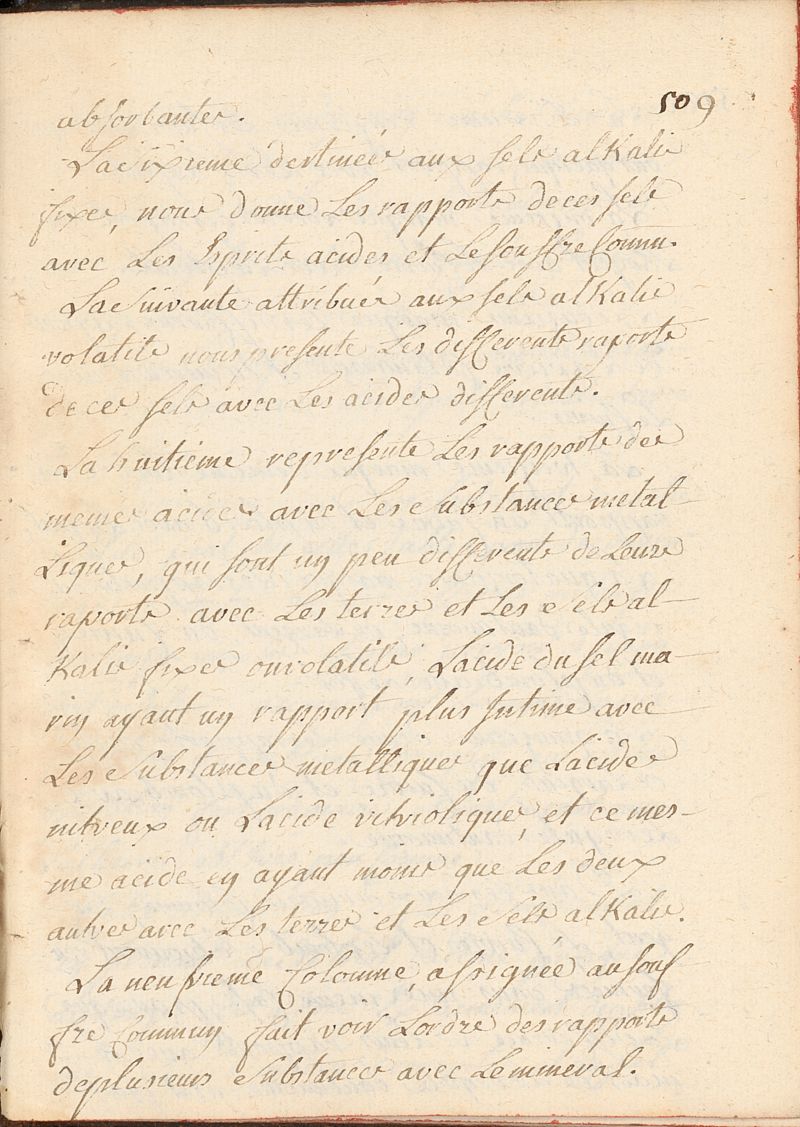 509
absorbantes.
La sixieme destinée aux sels alKalis
fixes, nous donne Les rapports de ces sels
avec Les Esprits acides et Le souffre Commu.
La Suivante attribuée aux sels alKalis
volatils nous presente Les differents raports
de ces sels avec Les acides differents.
La huitiéme represente Les rapports des
memes acides avec Les Substances metal
Liques, qui sont un peu differents de Leurs
raports avec Les terres et Les Sels al-
Kalis fixes ou volatils, L'acide du sel ma-
rin ayant un rapport plus Intime avec
Les Substances metalliques que L'acide
nitreux ou L'acide vitriolique, et ce mes-
me acide en ayant moins que Les deux
autres avec Les terres et Les Sels alKalis.
La neufvieme Colomne, assignée au souf
fre Commun fait voir L'ordre des rapports
de plusieurs Substances avec Le mineral.